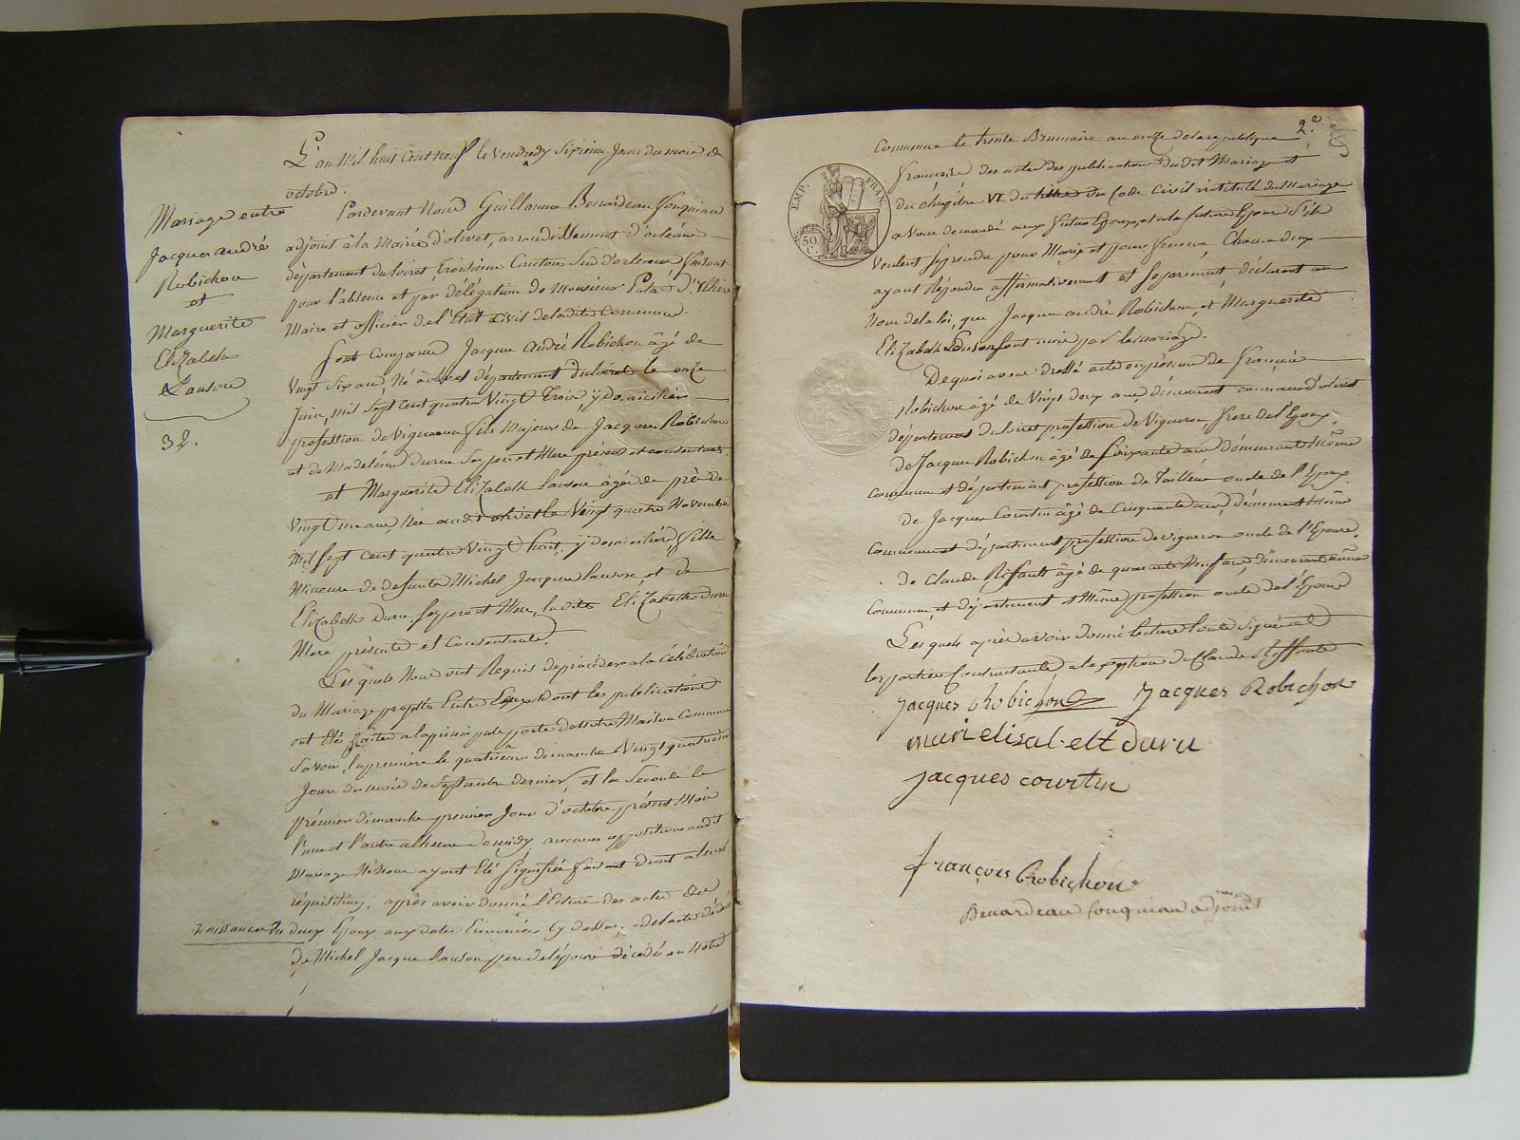 Mariage entre
Jacques andré
Robichon
et
Marguerite
Elizabeth
Lauson
32.
L'an Mil huit Cent neuf le Vendredy Sixieme Jour du mois de
octobre.
Pardevant Nous Guillaume Benardeau Fouqniau
adjoint à la Mairie d'olivet, arrondissement d'orleans
département du loiret troisieme Canton Sud d'orleans faisant
pour l'absence et par délégation de Monsieur
Maire et officier de l'Etat Civil de ladite Commune
Sont Comparus Jacques André Robichon âgé de
Vingt Six ans, Né à olivet département du loiret le onze
Juin, mil Sept Cent quatre Vingt Trois, y domicilié
profession de Vigneron fils Majeur de Jacques Robichon
et de Madeleine Ses pere et Mere présens et consentans.
et Marguerite Elizabeth Lauson âgée de près de
Vingt un ans, Née audit olivet le Vingt quatre Novembre
Mil Sept cent quatre Vingt huit, y domiciliée, fille
Mineure de defunts Michel Jacques Lauson et de
Elizabeth Duru Ses pere et Mere, ladite Elizabeth Duru
Mere présente et Consentante.
Lesquels Nous ont Requis de procéder a la Célébration
du Mariage projetté Entre Eux et dont les publications
ont Eté faites a la principale porte de notre Maison Commune
Savoir, la premiere le dimanche Vingt quatrieme
Jour du mois de Septembre dernier, et la Seconde le
prémier dimanche premier Jour d'octobre présent Mois
l'une et l'autre a l'heure de midy, aucune opposition audit
Mariage Ne Nous ayant Eté Signifiée faisant droit a leur
réquisition, après avoir donné Lecture des actes de
Naissance des deux Epoux aux dates Enoncées Cy dessus, de l'acte de décès
de Michel Jacques Lauson pere de l'épouse décédé en Notre
2.e
EMP. FRAN.
50 C.
Commune le trente Brumaire an onze de la republique
française des actes des publications dudit Mariage et
du chapitre VI du titre du Code Civil intitulé du Mariage
avons demandé aux futur Epoux, et a la future Epouse S'ils
veulent Se prendre pour Mari et pour femme, Chacun d'eux
ayant Répondu affirmativement et Separement, déclarons au
Nom de la loi, que Jacques andré Robichon, et Marguerite
Elizabeth Lauson Sont unis par le mariage.
De quoi avons dressé acte en présence de François
Robichon âgé de Vingt deux ans, demeurant commune d'olivet
département du loiret profession de Vigneron frere de l'Epoux,
de Jacques Robichon âgé de Soixante ans démeurant Même
Commune et département profession de Tailleur oncle de l'Epoux
de Jacques Courtin âgé de Cinquante ans, démeurant Même
Commune et département profession de vigneron oncle de l'Epouse,
de Claude Riffault âgé de quarante Neuf ans, démeurant même
Commune et département et Même profession oncle de l'Epouse
Lesquels après avoir donné lecture
les parties Contractantes a l'exeption de Claude Riffault
jacques Robichon Jacques Robichon
mari elisabelt duru
jacques courtin
françois Robichon
Benardeau fouqniau adjoint